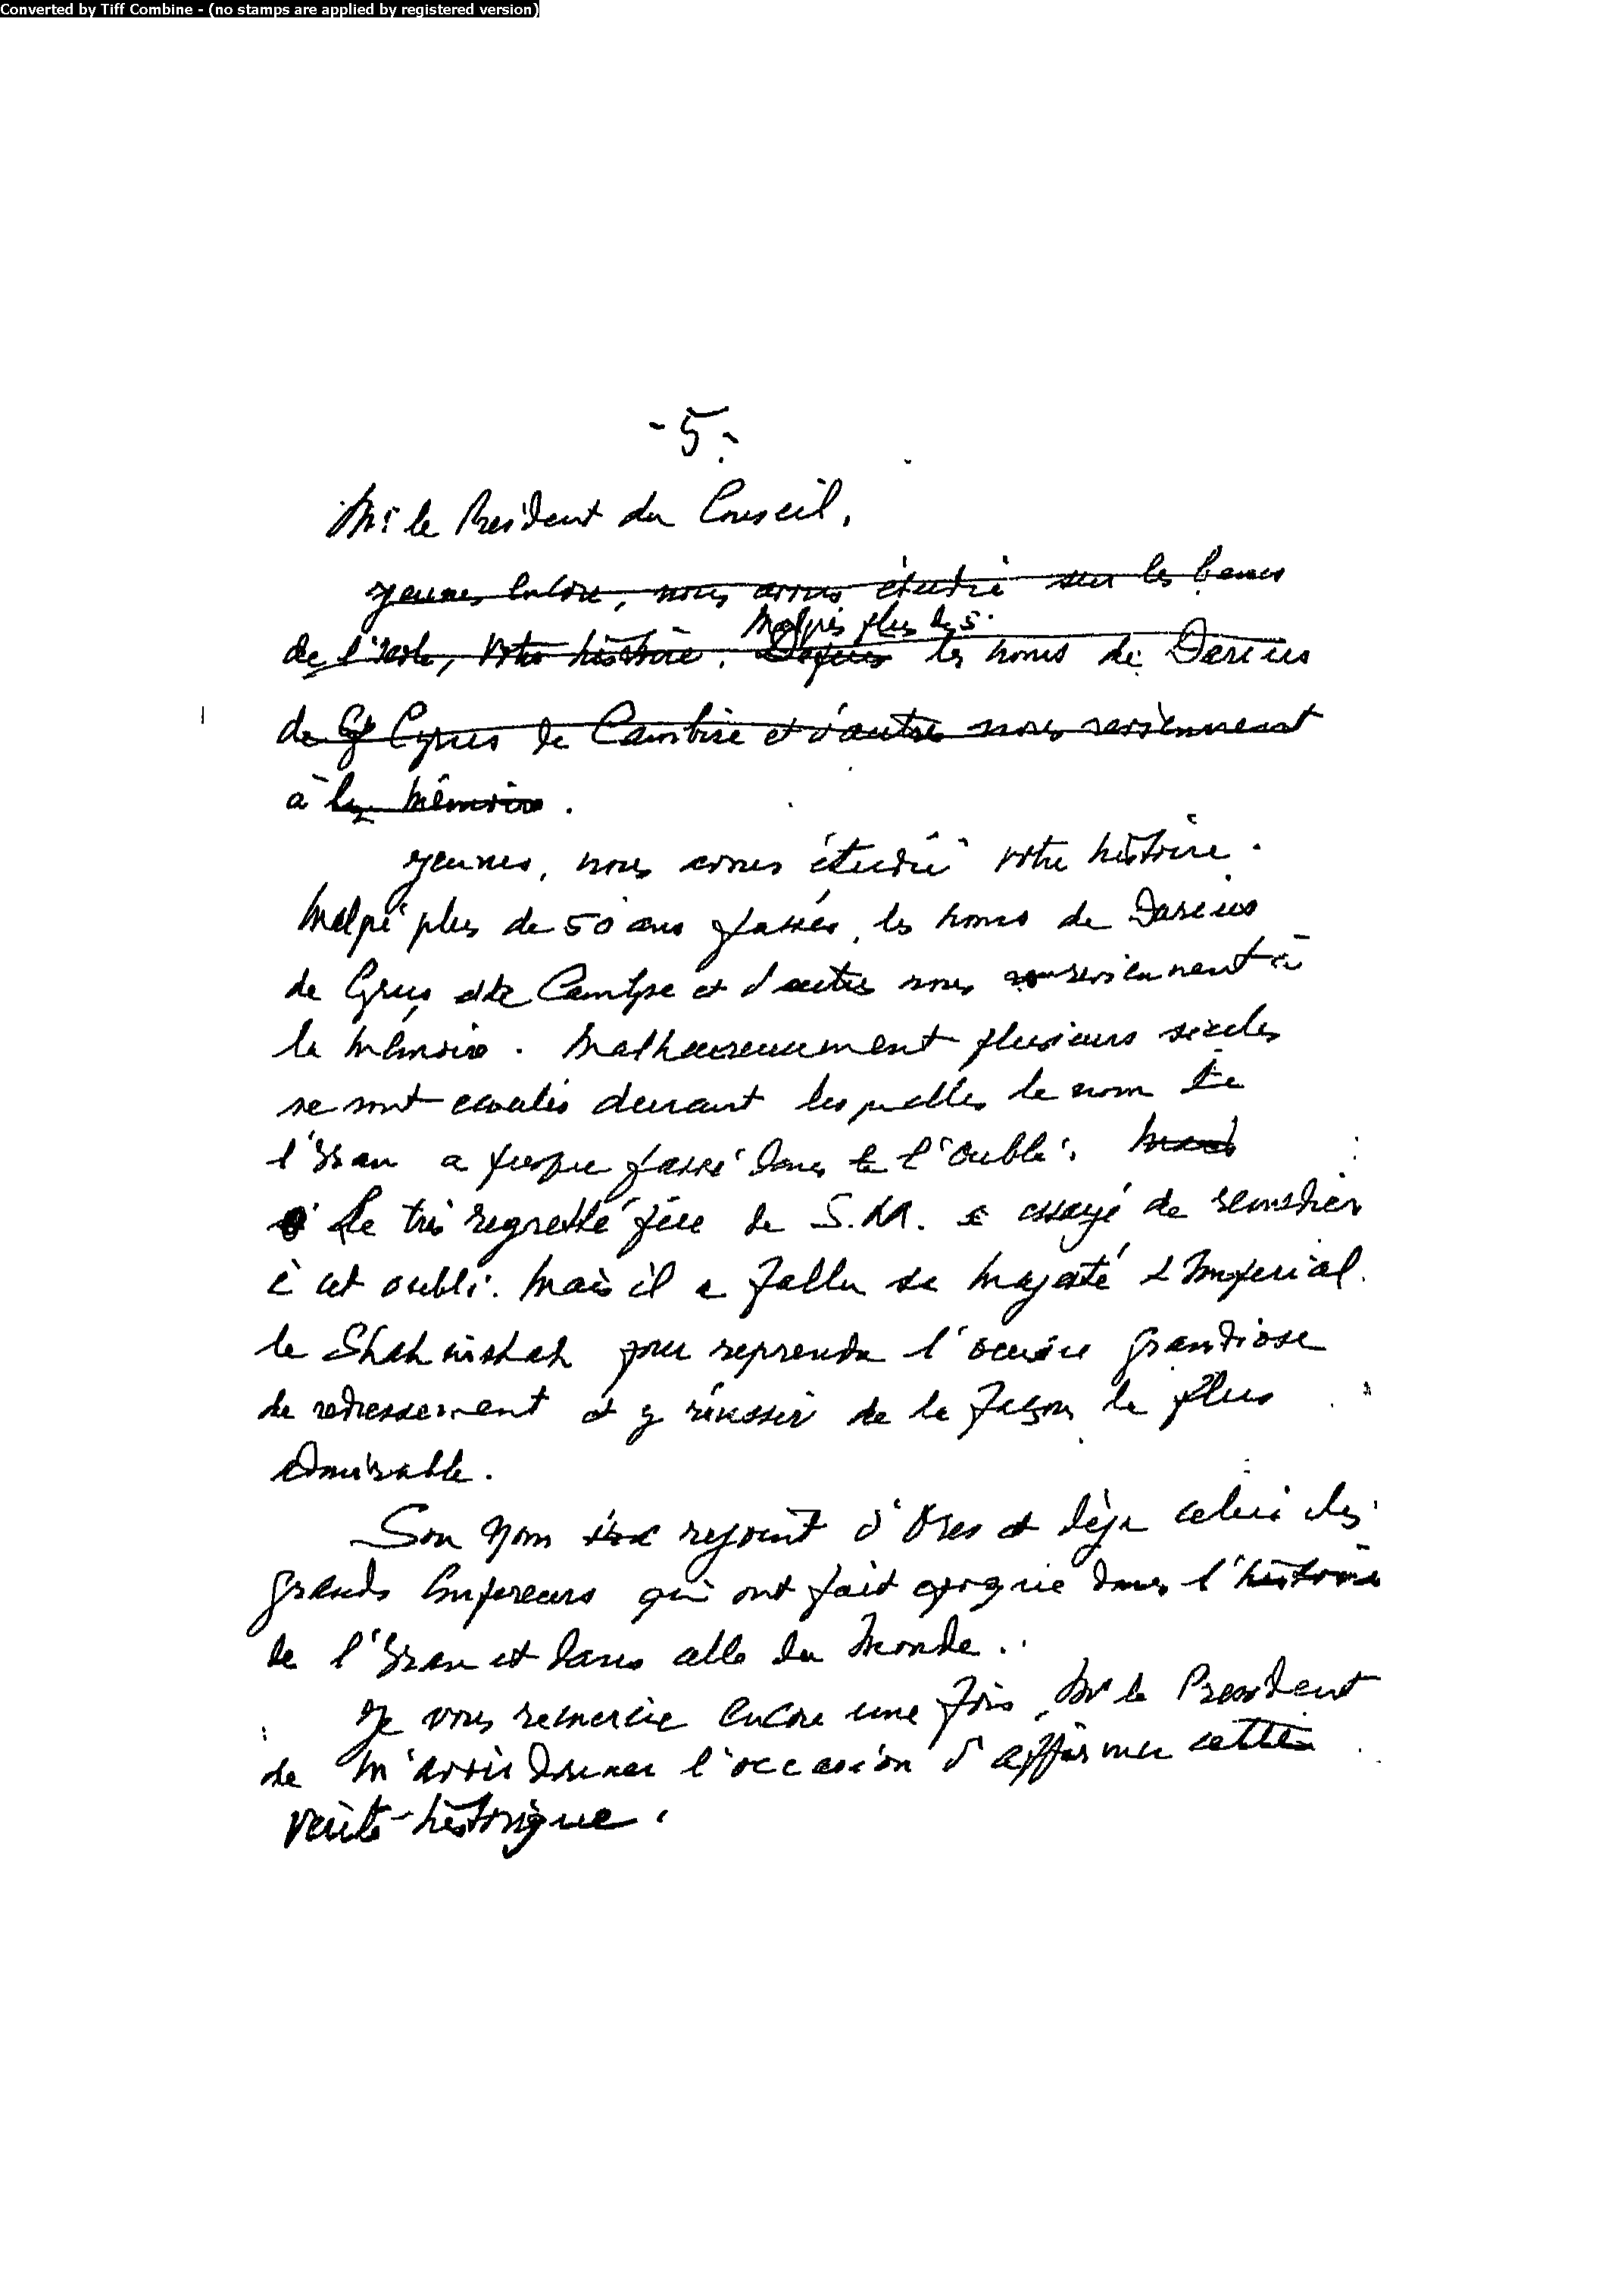 Converted by Tiff Combine - (no stamps are applied by registered version)
- 5 -
Mr le President du Conseil,
Jeunes encore, nous avons étudié sur les bancs
Malgrés plus de 5
de l'école, votre histoire. Depuis les noms de Darius
de Cy Cyrus de Cambise et d'autres nous reviennent
à la mémoire.
Jeunes, nous avons étudié votre histoire.
Malgré plus de 50 ans passés, les noms de Darius
de Cyrus, de Cambyse et d'autres nous reviennent à
la mémoire. Malheureusement plusieurs siècles
se sont écoulés durant lesquelles le nom de
l'Iran a presque passé dans l'oubli. Mais
Le très regretté père de S.M. a essayé de remédier
à cet oubli. Mais il a fallu sa Majesté Imperial
le Shahinshah pour reprendre l'oeuvre grandiose
de redressement et y réussir de la façon la plus
admirable.
Son nom rejoint d'ores et déjà celui des
grands Empereurs qui ont fait epoque dans l'histoire
de l'Iran et dans celle du Monde.
Je vous remercie encore une fois, Mr le President
de m'avoir donner l'occasion d'affirmer cette
verité historique.